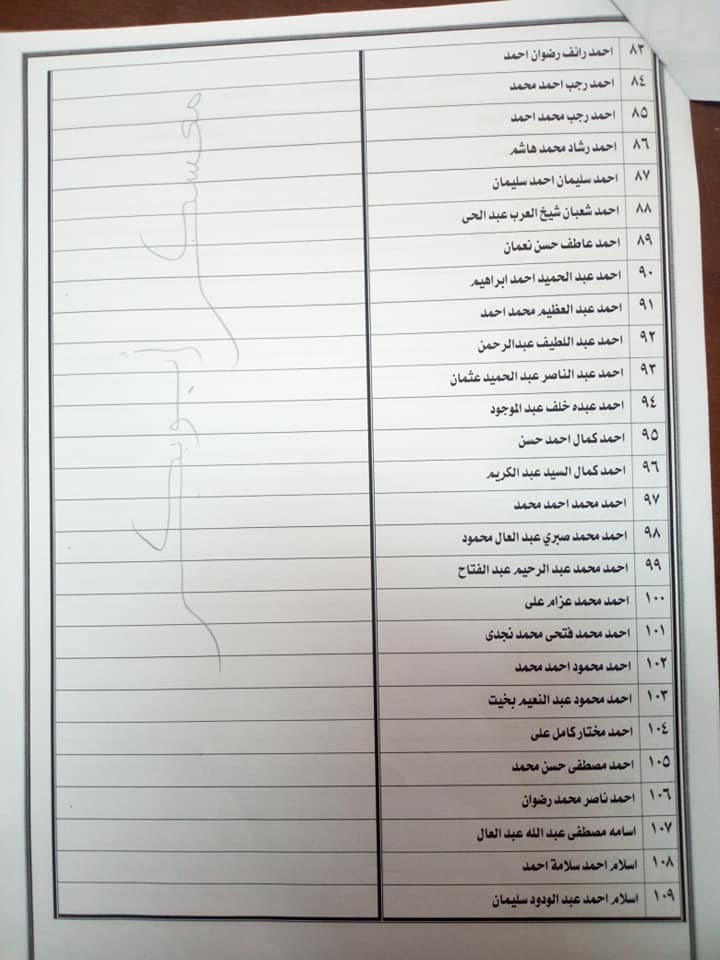 ٨٣ احمد رائف رضوان احمد
٨٤ احمد رجب احمد محمد
٨٥ احمد رجب محمد احمد
٨٦ احمد رشاد محمد هاشم
٨٧ احمد سليمان احمد سليمان
٨٨ احمد شعبان شيخ العرب عبد الحى
٨٩ احمد عاطف حسن نعمان
٩٠ احمد عبد الحميد احمد ابراهيم
٩١ احمد عبد العظيم محمد احمد
٩٢ احمد عبد اللطيف عبدالرحمن
٩٣ احمد عبد الناصر عبد الحميد عثمان
٩٤ احمد عبده خلف عبد الموجود
٩٥ احمد كمال احمد حسن
٩٦ احمد كمال السيد عبد الكريم
٩٧ احمد محمد احمد محمد
٩٨ احمد محمد صبري عبد العال محمود
٩٩ احمد محمد عبد الرحيم عبد الفتاح
١٠٠ احمد محمد عزام على
١٠١ احمد محمد فتحى محمد نجدى
١٠٢ احمد محمود احمد محمد
١٠٣ احمد محمود عبد النعيم بخيت
١٠٤ احمد مختار كامل على
١٠٥ احمد مصطفى حسن محمد
١٠٦ احمد ناصر محمد رضوان
١٠٧ اسامه مصطفى عبد الله عبد العال
١٠٨ اسلام احمد سلامة احمد
١٠٩ اسلام احمد عبد الودود سليمان